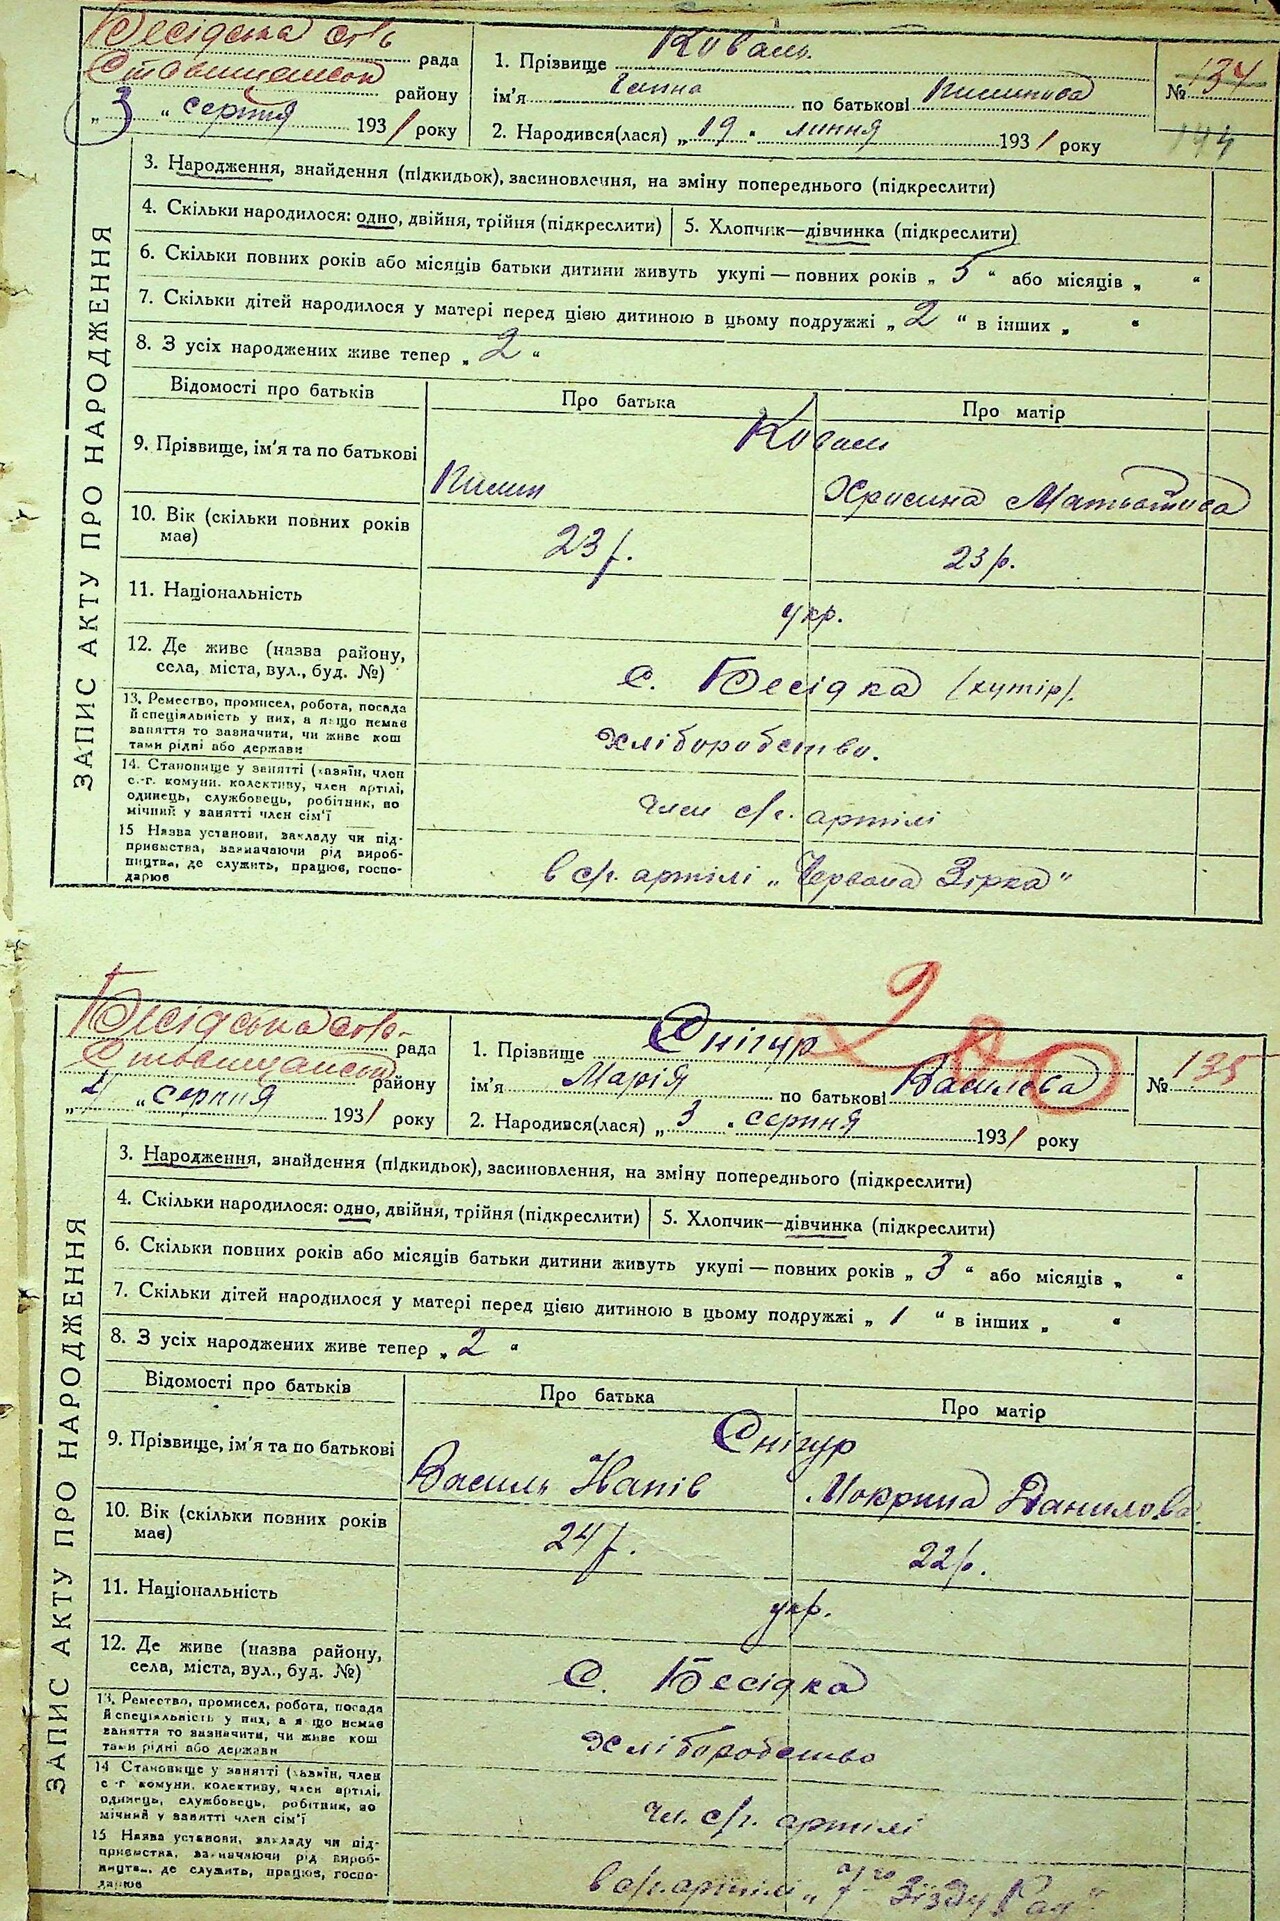 Бесідська
рада
Ставищанськ
району
„3“ серпня 1931 року
1. Прізвище Коваль
ім'я Ганна по батькові
2. Народився(лася) „19“ липня 1931 року
№ 134
144
ЗАПИС АКТУ ПРО НАРОДЖЕННЯ
3. Народження, знайдення (підкидьок), засиновлення, на зміну попереднього (підкреслити)
4. Скільки народилося: одно, двійня, трійня (підкреслити)
5. Хлопчик—дівчинка (підкреслити)
6. Скільки повних років або місяців батьки дитини живуть укупі — повних років „5“ або місяців „ “
7. Скільки дітей народилося у матері перед цією дитиною в цьому подружжі „2“ в інших „ “
8. З усіх народжених живе тепер „2“
Відомості про батьків
Про батька
Про матір
9. Прізвище, ім'я та по батькові
Коваль
Хрисина
10. Вік (скільки повних років має)
23 р.
23 р.
11. Національність
укр.
12. Де живе (назва району,
села, міста, вул., буд. №)
с. Бесідка (хутір).
13. Ремество, промисел, робота, посада
й спеціяльність у них, а якщо немає
заняття то зазначити, чи живе кош
тами рідні або держави
хліборобство.
14. Становище у занятті (хазяїн, член
с.-г. комуни. колективу, член артілі,
одинець, службовець, робітник, по
мічний у занятті член сім'ї
член с/г. артілі
15 Назва установи, закладу чи під-
приємства, зазначаючи рід вироб-
ництва, де служить, працює, госпо-
дарює
в с/г. артілі „Червона Зірка“
Бесідська
рада
Ставищанськ
району
„4“ серпня 1931 року
1. Прізвище Снігур
ім'я Марія по батькові Василева
2. Народився(лася) „3“ серпня 1931 року
№ 135
200
ЗАПИС АКТУ ПРО НАРОДЖЕННЯ
3. Народження, знайдення (підкидьок), засиновлення, на зміну попереднього (підкреслити)
4. Скільки народилося: одно, двійня, трійня (підкреслити)
5. Хлопчик—дівчинка (підкреслити)
6. Скільки повних років або місяців батьки дитини живуть укупі — повних років „3“ або місяців „ “
7. Скільки дітей народилося у матері перед цією дитиною в цьому подружжі „1“ в інших „ “
8. З усіх народжених живе тепер „2“
Відомості про батьків
Про батька
Про матір
9. Прізвище, ім'я та по батькові
Снігур
Василь
Мокрина Данилова
10. Вік (скільки повних років має)
24 р.
22 р.
11. Національність
укр.
12. Де живе (назва району,
села, міста, вул., буд. №)
с. Бесідка
13. Ремество, промисел, робота, посада
й спеціяльність у них, а якщо немає
заняття то зазначити, чи живе кош
тами рідні або держави
хліборобство
14 Становище у занятті (хазяїн, член
с-г комуни, колективу, член артілі,
одинець, службовець, робітник, по
мічний у занятті член сім'ї
чл. с/г. артілі
15 Назва установи, закладу чи під-
приємства, зазначаючи рід вироб-
ництва, де служить, працює, госпо-
дарює
в с/г. артілі „7-го Зїзду Рад“